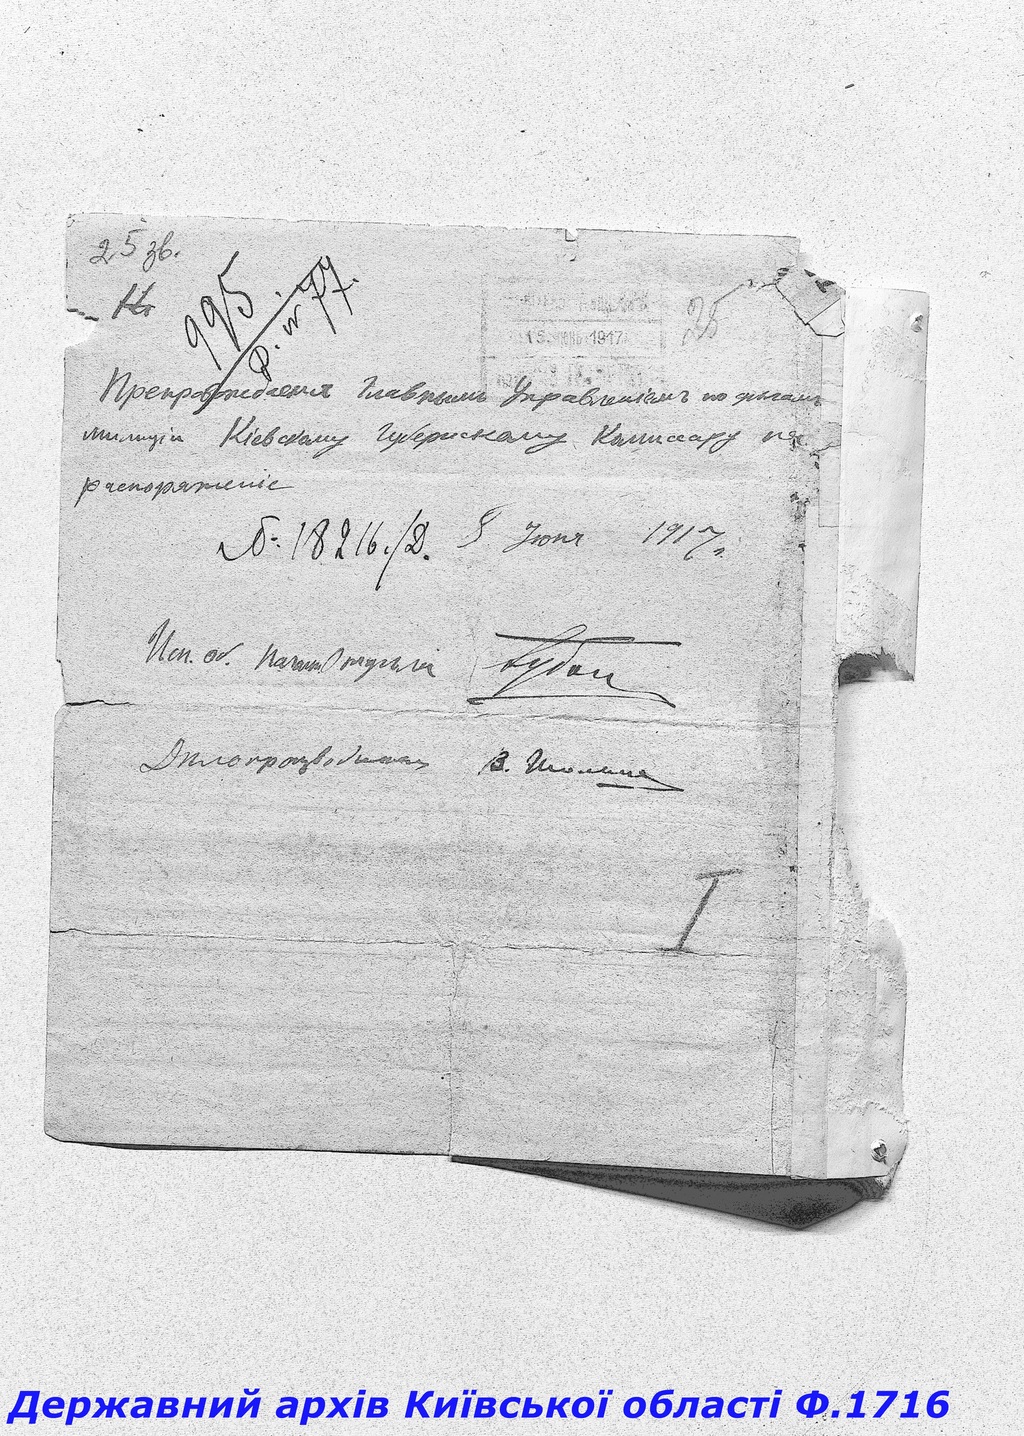 25 зв.
995.
р. № 77.
25
15 июнь 1917
Препровождается Главным Управленіем по дѣлам
милиціи Кіевскому Губернскому Комиссару на
распоряженіе
№ 18216./Д. 5 Июня 1917 г.
Исп. об.
Дѣлопроизводитель В.
I
Державний архів Київської області Ф.1716